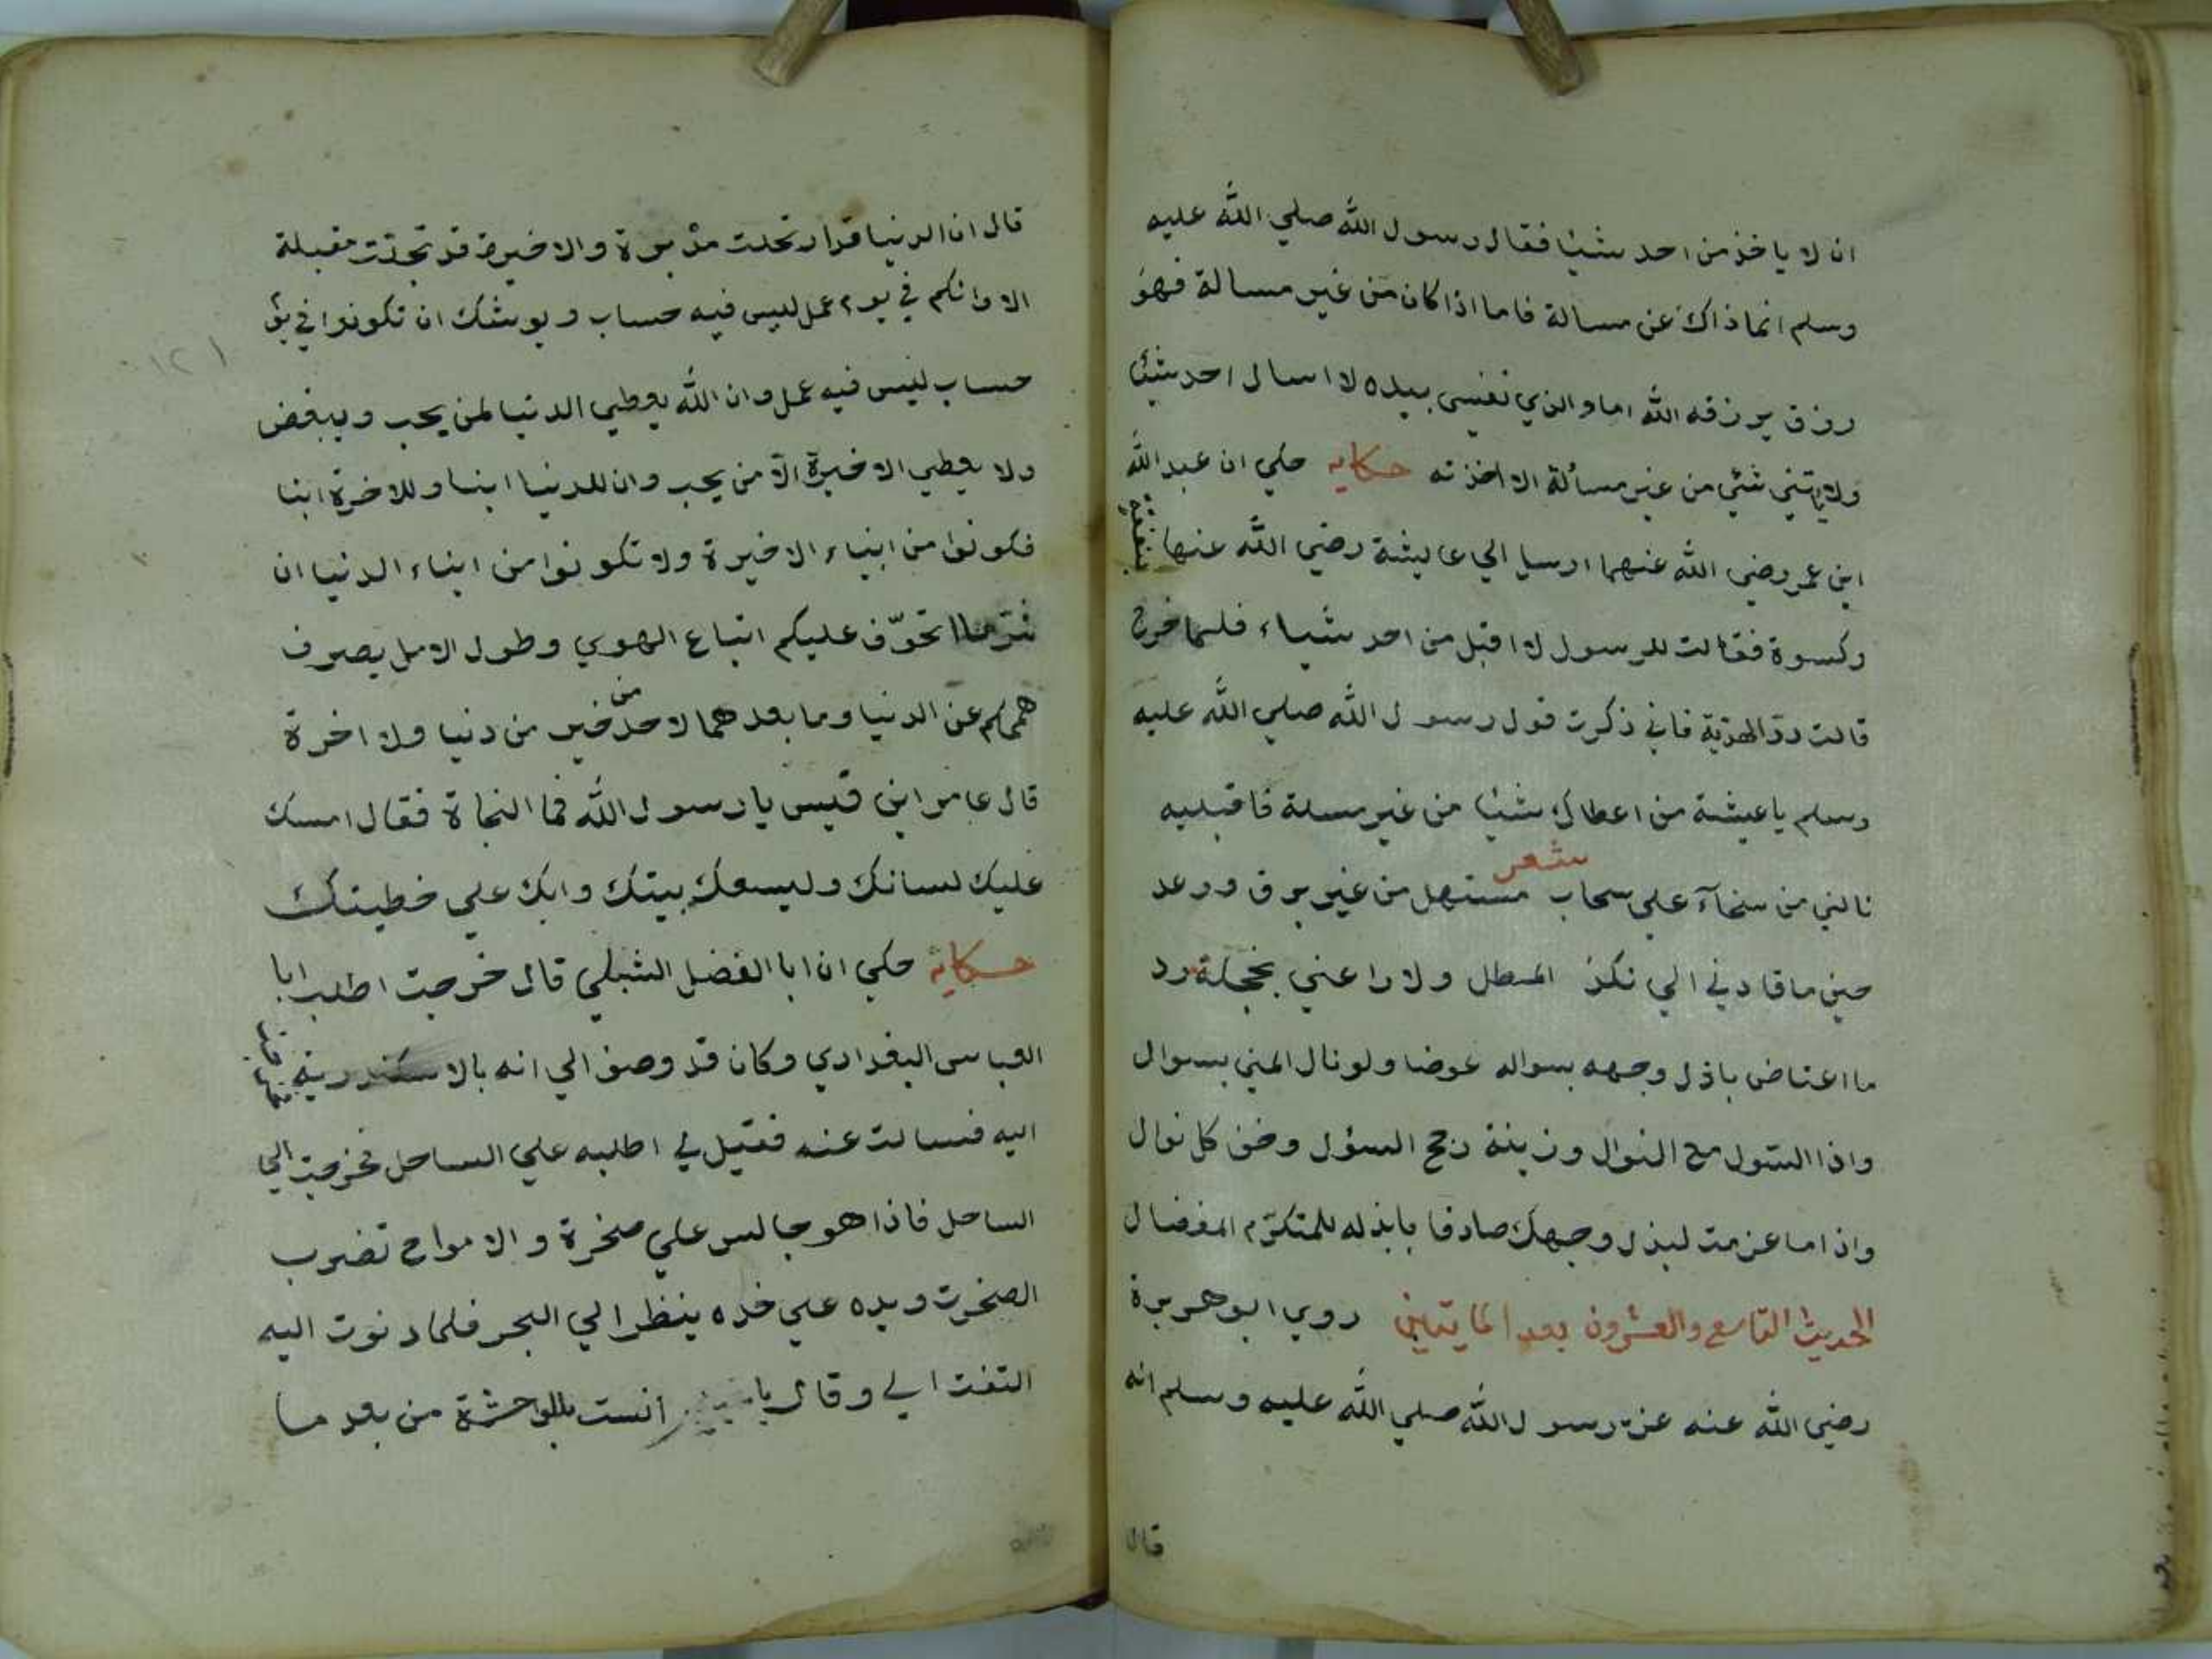 ان لا ياخذ من احد شيئا فقال رسول الله صلي الله عليه
وسلم انما ذاك عن مسالة فاما اذا كان من غير مسالة فهو
رزق يرزقه الله اما والذي نفسي بيده لا اسال احد شيئا
ولا ياتيني شئي من غير مسألة الا اخذته حكايه حكي ان عبد الله
ابن عمر رضي الله عنهما ارسل الي عايشة رضي الله عنها بنفقة
وكسوة فقالت للرسول لا اقبل من احد شياء فلما خرج
قالت ردّ الهديّة فاني ذكرت قول رسول الله صلي الله عليه
وسلم ياعيشة من اعطاك شيئا من غير مسلة فاقبليه
شعر
نالني من سخآء علي سحاب مستهل من غير برق ورعد
حين ما قادني الي نكد المطل ولا راعني بخجلة رد
ما اعتاض باذل وجهه بسواله عوضا ولو نال المني بسوال
واذا السّول مع النوال وزينة رجح السؤل وخف كل نوال
واذا ما عزمت لبذل وجهك صادقا بابذله للمتكرّم المفضال
الحديث التاسع والعشرون بعد المايتين روي ابو هريرة
رضي الله عنه عن رسول الله صلي الله عليه وسلم انه
قال
قال ان الدنيا قد ارتحلت مدبرة والاخيرة قد تجذت مقبلة
الا وانكم في يوم عمل ليس فيه حساب ويوشك ان تكونوا في يو
١٢١
حساب ليس فيه عمل وان الله يعطي الدنيا لمن يحب ويبغض
ولا يعطي الاخيرة الا من يحب وان للدنيا ابنا وللاخرة ابنا
فكونوا من ابناء الاخيرة ولا تكونوا من ابناء الدنيا ان
شرّ ما اتخوّف عليكم اتباع الهوي وطول الامل يصرف
هممكم عن الدنيا وما بعدهما لاحد من خير من دنيا ولا اخرة
قال عامر ابن قيس يا رسول الله فما النجاة فقال امسك
عليك لسانك وليسعك بيتك وابك علي خطيتك
حكاية حكي ان ابا الفضل الشبلي قال خرجت اطلب ابا
العباس البغدادي وكان قد وصف الي انه بالاسكندرية
اليه فسالت عنه فقيل لي اطلبه علي الساحل فخرجت الي
الساحل فاذا هو جالس علي صخرة والامواج تضرب
الصخرت ويده علي خده ينظر الي البحر فلما دنوت اليه
التفت الي وقال يا انست بالوحشة من بعد ما